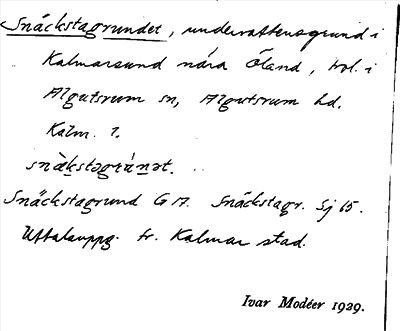 Snäckstagrundet, undervattensgrund i
Kalmarsund nära Öland, trol. i
Algutsrum sn, Algutsrum hd.
Kalm. l.
snàkstəgrúnət.
Snäckstagrund GM. Snäckstagr. Sj 65.
Uttalsuppg. fr. Kalmar stad.
Ivar Modéer 1929.